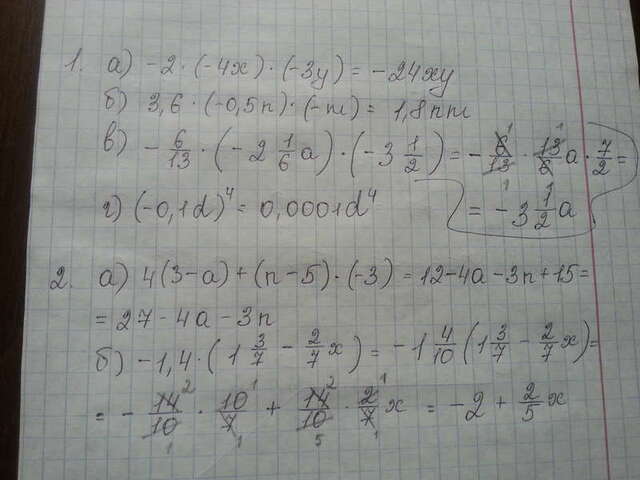 1. а) -2 · (-4x) · (-3y) = -24xy
б) 3,6 · (-0,5n) · (-m) = 1,8nm
в) - 6/13 · (-2 1/6 a) · (-3 1/2) = - 6/13 · 13/6 a · 7/2 =
= -3 1/2 a
г) (-0,1d)⁴ = 0,0001d⁴
2. а) 4(3-a) + (n-5) · (-3) = 12-4a-3n+15 =
= 27 - 4a - 3n
б) -1,4 · (1 3/7 - 2/7 x) = -1 4/10 (1 3/7 - 2/7 x) =
= - 14/10 · 10/7 + 14/10 · 2/7 x = -2 + 2/5 x